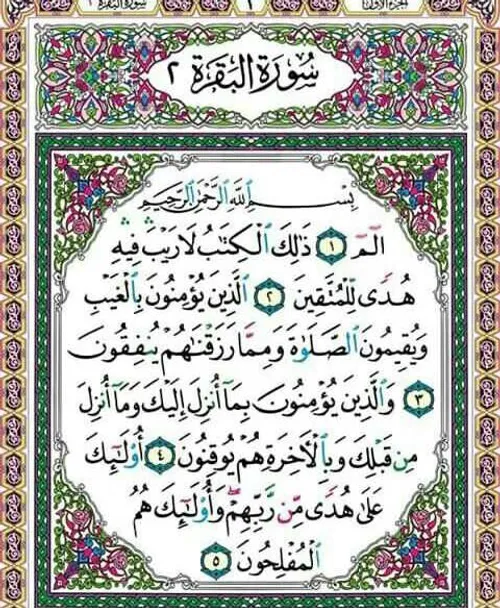 سورة البقرة ٢
١
الجزء الأول
سُورَةُ البَقَرَةِ ٢
بِسْمِ ٱللَّهِ ٱلرَّحْمَٰنِ ٱلرَّحِيمِ
الٓمٓ ١ ذَٰلِكَ ٱلْكِتَٰبُ لَا رَيْبَ ۛ فِيهِ ۛ
هُدًى لِّلْمُتَّقِينَ ٢ ٱلَّذِينَ يُؤْمِنُونَ بِٱلْغَيْبِ
وَيُقِيمُونَ ٱلصَّلَوٰةَ وَمِمَّا رَزَقْنَٰهُمْ يُنفِقُونَ
٣ وَٱلَّذِينَ يُؤْمِنُونَ بِمَآ أُنزِلَ إِلَيْكَ وَمَآ أُنزِلَ
مِن قَبْلِكَ وَبِٱلْءَاخِرَةِ هُمْ يُوقِنُونَ ٤ أُو۟لَٰٓئِكَ
عَلَىٰ هُدًى مِّن رَّبِّهِمْ ۖ وَأُو۟لَٰٓئِكَ هُمُ
ٱلْمُفْلِحُونَ ٥